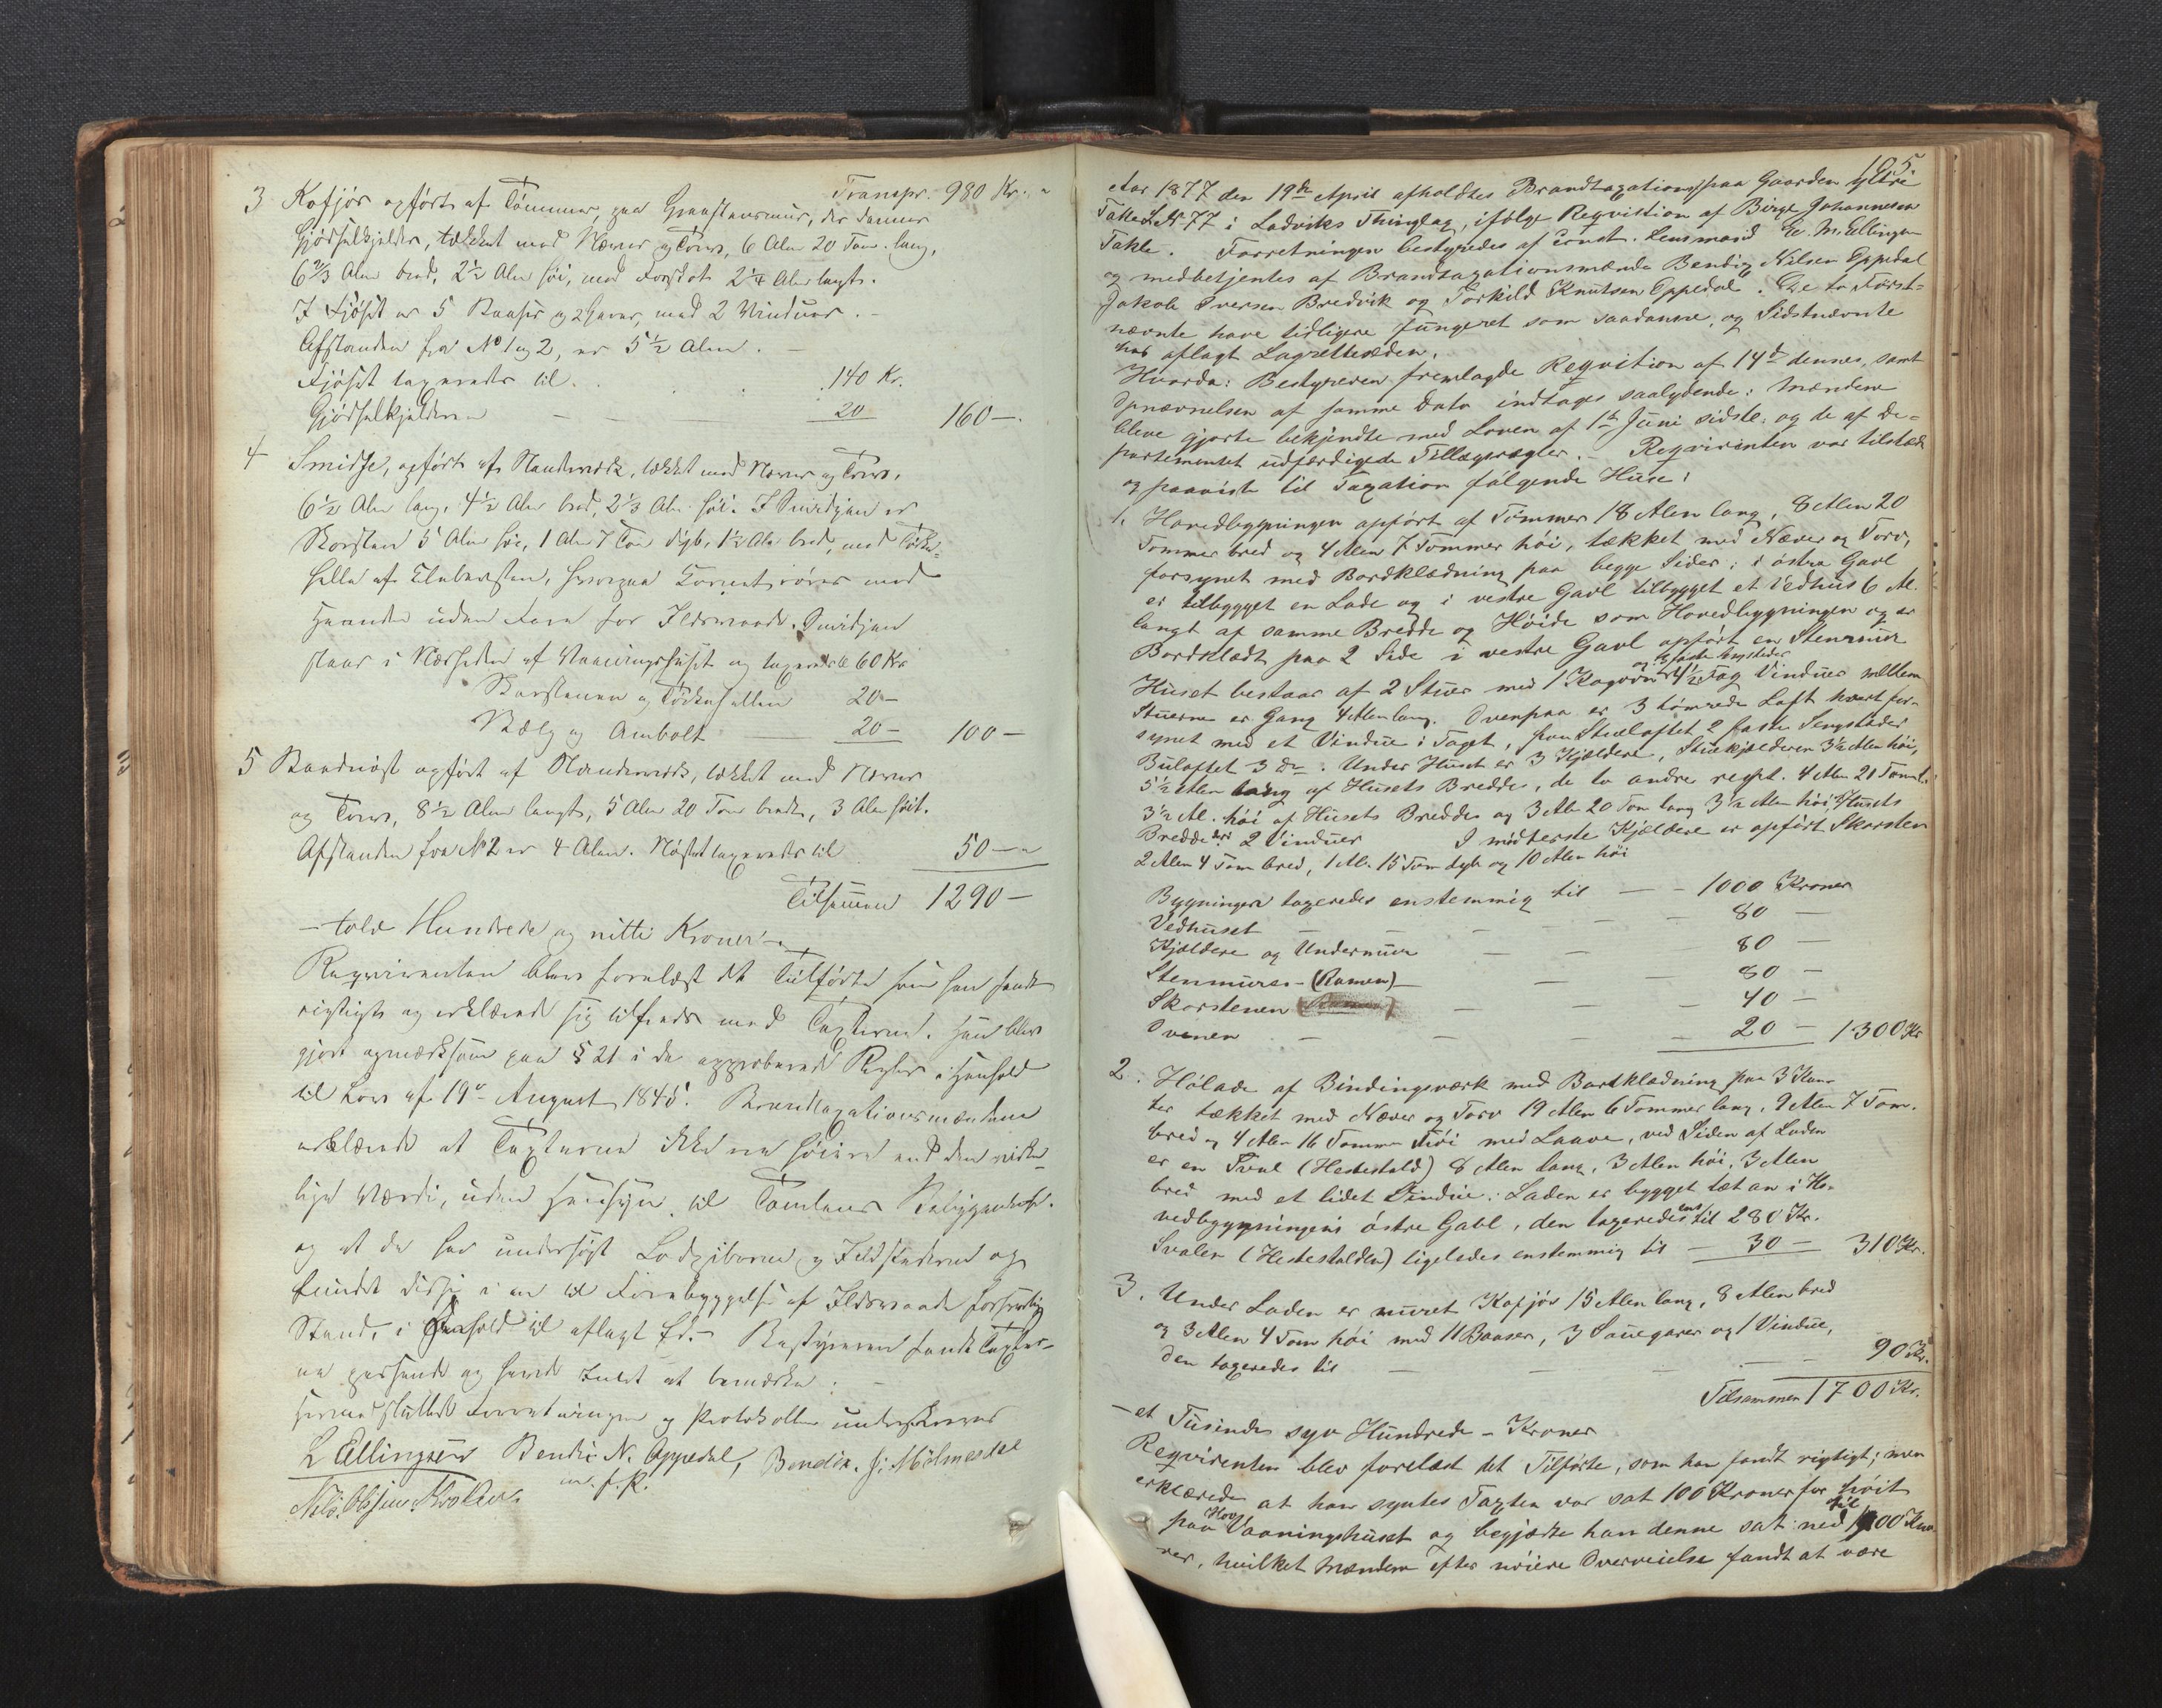 Transpr. 980 Kr. "
3 Kofjøs opført af Tømmer, paa Graastensmur, der danner
Gjødselkjelder, tækket med Næver og Torv, 6 Alen 20 Tom. lang,
6 2/3 Alen bred, 2 1/2 Alen høi, med Forskot 2 1/4 Alen langt.
I Fjøset er 5 Baaser og 2 Garer, med 2 Vinduer. -
Afstanden fra No 1 og 2, er 5 1/2 Alen. -
Fjøset taxeredes til . . . 140 Kr.
Gjødselkjelderen — — 20 160 —.
4 Smidje, opført af Standværk, tækket med Næver og Torv,
6 1/2 Alen lang, 4 1/2 Alen bred, 2 1/3 Alen høi. I Smidjen er
Skorsten 5 Alen høi, 1 Alen 7 Tom dyb, 1 1/2 Alen bred, med
helle af Klæbersten, hvorpaa
uden Fare for Ildsvaade. Smidjen
staar i Nærheden af Vaaningshuset og taxeredes til 60 Kr
Skorstenen og 20 —
Bælg og Ambolt — 20 — 100 —
5 Baadnøst opført af Standværk, tækket med Næver
og Torv, 8 1/2 Alen langt, 5 Alen 20 Tom bredt, 3 Alen høit.
Afstanden fra No 2 er 4 Alen. Nøstet taxeredes til 50 — "
Tilsammen 1290 —
— tolv Hundrede og nitti Kroner —
Reqvirenten blev forelæst det Tilførte som han fandt
rigtigt og erklærede sig tilfreds med Taxterne. Han blev
gjort opmærksom paa § 21 i de approberede Regler i Henhold
til Lov af 19de August 1845. Brandtaxationsmændene
erklærede at Taxterne ikke er høiere end den virke-
lige Værdi, uden Hensyn til Tomtens Beliggenhed.
og at de har undersøgt Lodpiberne og Ildstederne og
fundet disse i en til Forebyggelse af Ildsvaade forsvarlig
Stand, i Henhold til aflagt Ed. - Bestyreren fandt Taxter-
ne passende og havde Intet at bemærke. -
Hermed sluttet Forretningen og Protokollen underskreven
L Ellingsen Bendix N. Oppedal, Bendix. J. Mølmesdal
m. f. P.
105
Aar 1877 den 19de April afholdtes Brandtaxation paa Gaarden Ytre
Takle L. No 77 i Ladviks Thinglag, ifølge Reqvisition af Birge Johannesen
Takle. Forretningen bestyredes af Const. Lensmand Ew. M. Ellingsen
og medbetjentes af Brandtaxationsmænd Bendix Nilsen Oppedal
Jakob Iversen Bredvik og Torkild Knutsen Oppedal. De to Først-
nævnte have tidligere fungeret som saadanne, og Sidstnævnte
har aflagt Lagretteseden.
Hvorda: Bestyreren fremlagde Reqvisition af 14de dennes, samt
Opnævnelsen af samme Dato indtages saalydende: Mændene
bleve gjorte bekjendte med Loven af 1ste Juni sidstl. og de af De-
partementet udfærdigede Tillægsregler. - Reqvirenten var tilstede
og paaviste til Taxation følgende Huse:
1. Hovedbygningen opført af Tømmer 18 Alen lang, 8 Alen 20
Tommer bred og 4 Alen 7 Tommer høi, tækket med Næver og Torv,
forsynet med Bordklædning paa begge Sider; i østre Gavl
er tilbygget en Lade og i vestre Gavl tilbygget et Vedhus 6 Al.
langt af samme Bredde og Høide som Hovedbygningen og er
Bordklædt paa 2 Side i vestre Gavl opført en Stenmur
og 3 faste Sengsteder
Huset bestaar af 2 Stuer med 1 Kogovn 4 1/2 Fag Vinduer mellem
Stuerne er Gang 4 Alen lang. Ovenpaa er 3 tømrede Loft hvert for-
synet med et Vindue i Taget, paa Stueloftet 2 faste Sengsteder
Buloftet 3 do. Under Huset er 3 Kjældere, Stuekjælderen 3 1/2 Alen høi,
5 1/2 Alen lang af Husets Bredde, de to andre respt. 4 Alen 21 Tom l.
3 1/2 Al. høi af Husets Bredde og 3 Alen 20 Tom lang 3 1/2 Alen høi, Husets
Bredde er 2 Vinduer I midterste Kjælder er opført Skorsten
2 Alen 4 Tom bred, 1 Al. 15 Tom dyb og 10 Alen høi
Bygningen taxeredes enstemmig til — — 1000 Kroner
Vedhuset — — — — 80 —
Kjældere og Undermur — — 80 —
Stenmuren - (Ramen) — — — 80 —
Skorstenen — — 40 —
Ovenen — — — — 20 — 1300 Kr
2. Hølade af Bindingsværk med Bordklædning paa 3 Kan-
ter tækket med Næver og Torv 19 Alen 6 Tommer lang, 9 Alen 7 Tom.
bred og 4 Alen 16 Tommer høi med Laave, ved Siden af Laden
er en Sval (Hestestald) 8 Alen lang, 3 Alen høi, 3 Alen
bred med et lidet Vindue. Laden er bygget tæt an i Ho-
vedbygningens østre Gavl, den taxeredes ens til 280 Kr.
Svalen (Hestestalden) ligeledes enstemmig til — 30 — 310 Kr.
3. Under Laden er muret Kofjøs 15 Alen lang, 8 Alen bred
og 3 Alen 4 Tom høi med 11 Baaser, 3 Sauegarer og 1 Vindue,
den taxeredes til — — — — 90 Kr.
Tilsammen 1700 Kr.
— et Tusinde syv Hundrede - Kroner
Reqvirenten blev forelæst det Tilførte, som han fandt rigtigt; men
erklærede at han syntes Taxten var sat 100 Kroner for høit
paa Vaaningshuset og begjærte han denne sat ned til 00 Kro-
ner, hvilket Mændene efter nøiere Overveielse fandt at være